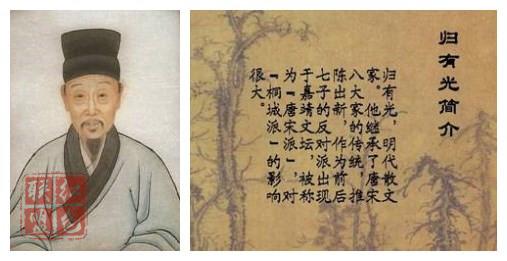 归有光简介
归有光，明代散文
家。他继承了唐宋
八大家的传统，推
陈出新，作为前后
七子的反对派出现
于嘉靖文坛，被称
为“唐宋派”，对
“桐城派”的影响
很大。